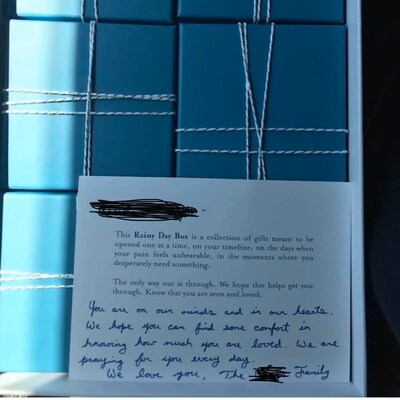 This Rainy Day Box is a collection of gifts meant to be
opened one at a time, on your timeline, on the days when
your pain feels unbearable, in the moments where you
desperately need something.
The only way out is through. We hope this helps get you
through. Know that you are seen and loved.
You are on our minds and in our hearts.
We hope you can find some comfort in
knowing how much you are loved. We are
praying for you every day.
We love you, The Family